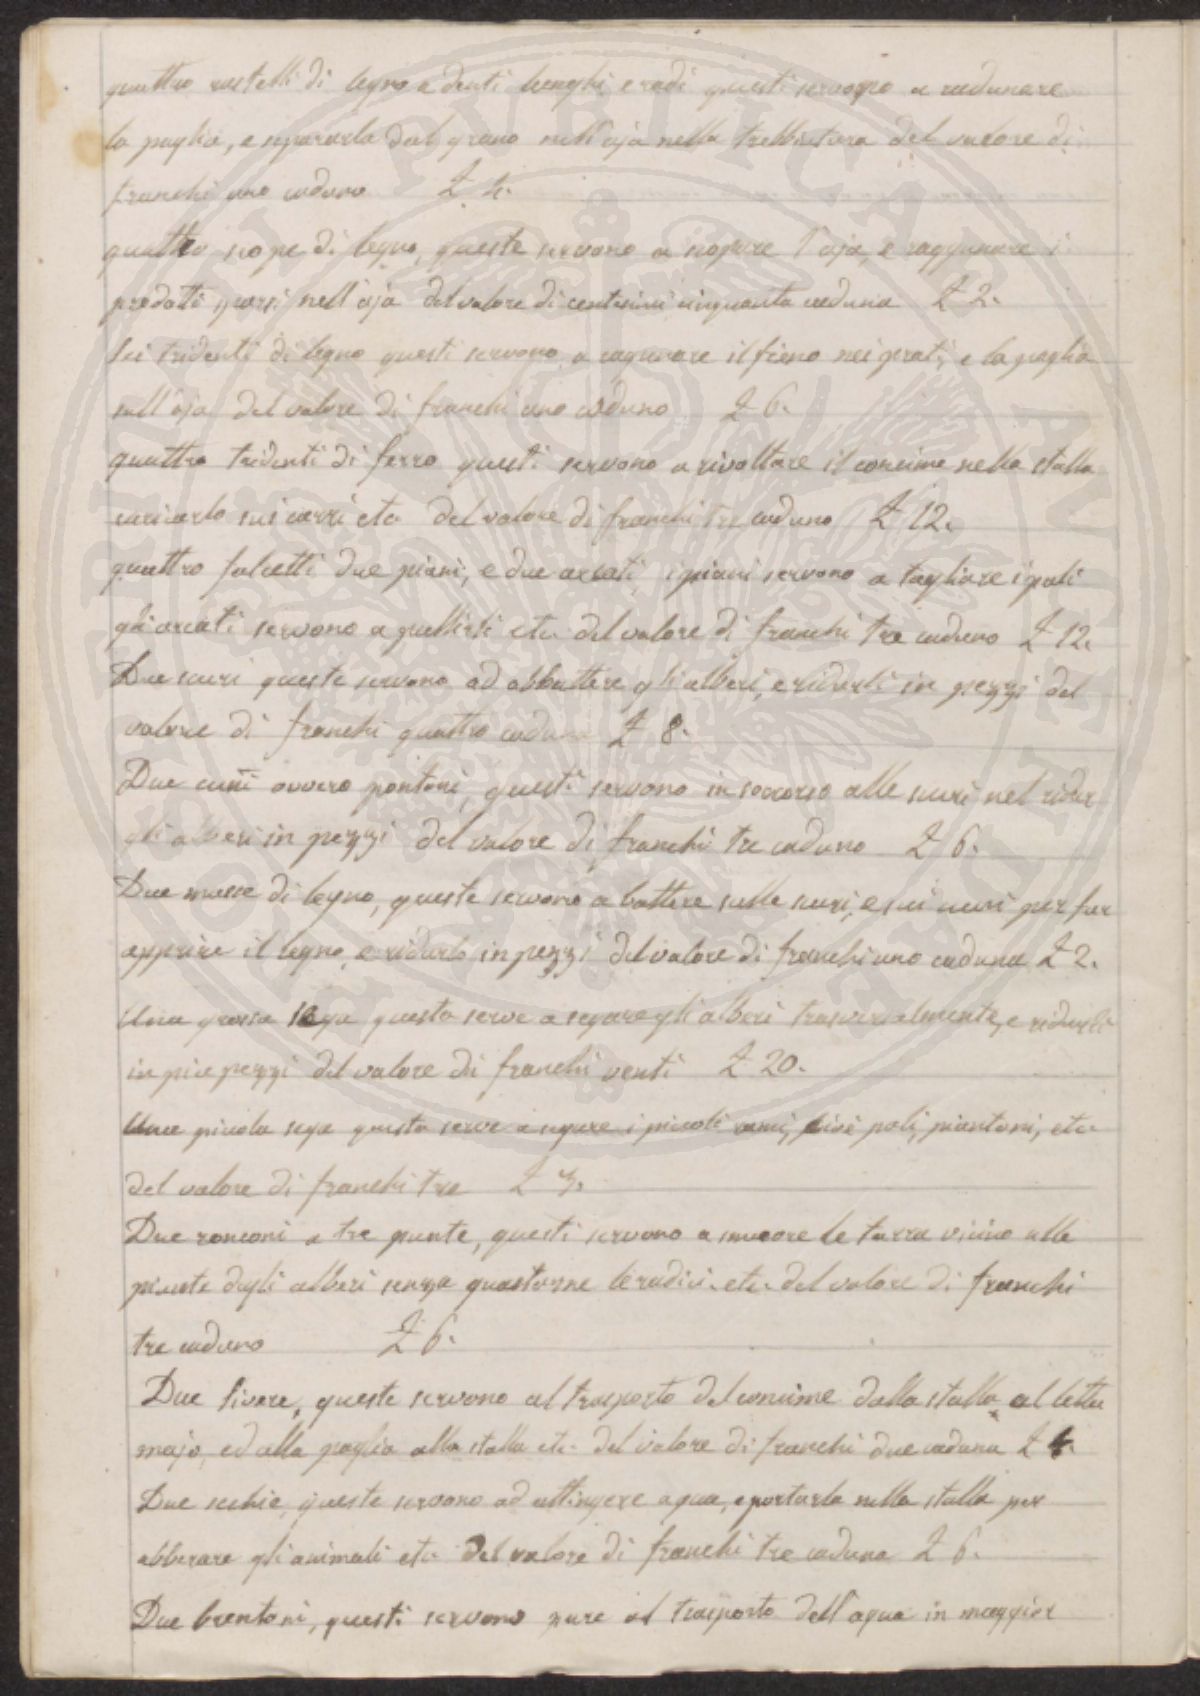 quattro rastelli di legno a denti lunghi e radi questi servono a radunare
la paglia, e separarla dal grano nell'aja nella trebbiatura del valore di
franchi uno caduno £ 4.
quattro scope di legno, queste servono a scopare l'aja, e raggunare i
prodotti sparsi nell'aja del valore di centesimi cinquanta caduna £ 2.
Sei tridenti di legno questi servono a ragunare il fieno nei prati, e la paglia
sull'aja del valore di franchi uno caduno £ 6.
quattro tridenti di ferro questi servono a rivoltare il concime nella stalla
caricarlo sui carri etc. del valore di franchi tre caduno £ 12.
quattro falcetti due piani, e due arcati, i piani servono a tagliare i pali
gli arcati servono a pullirli etc. del valore di franchi tre caduno £ 12.
Due scuri queste servono ad abbattere gli alberi, e ridurli in pezzi del
valore di franchi quattro caduna £ 8.
Due cuni ovvero pontoni, questi servono in soccorso alle scuri nel ridur
gli alberi in pezzi del valore di franchi tre caduno £ 6.
Due masse di legno, queste servono a battere sulle scuri, e sui cuni per far
apprire il legno, e ridurlo in pezzi del valore di franchi uno caduna £ 2.
Una grossa sega questa serve a segare gli alberi trasversalmente, e ridurli
in più pezzi del valore di franchi venti £ 20.
Una picola sega questa serve a segare i piccoli rami, pali, piantoni, etc.
del valore di franchi tre £ 3.
Due ronconi a tre punte, questi servono a smuovere la terra vicino alle
piante degli alberi senza guastarne le radici. etc. del valore di franchi
tre caduno £ 6.
Due sivere, queste servono al trasporto del concime dalla stalla al letta
majo, ed alla paglia alla stalla etc. del valore di franchi due caduna £ 4.
Due secchie, queste servono ad attingere aqua, e portarla nella stalla per
abberare gli animali etc. del valore di franchi tre caduna £ 6.
Due brentoni, questi servono pure al trasporto dell'aqua in maggior